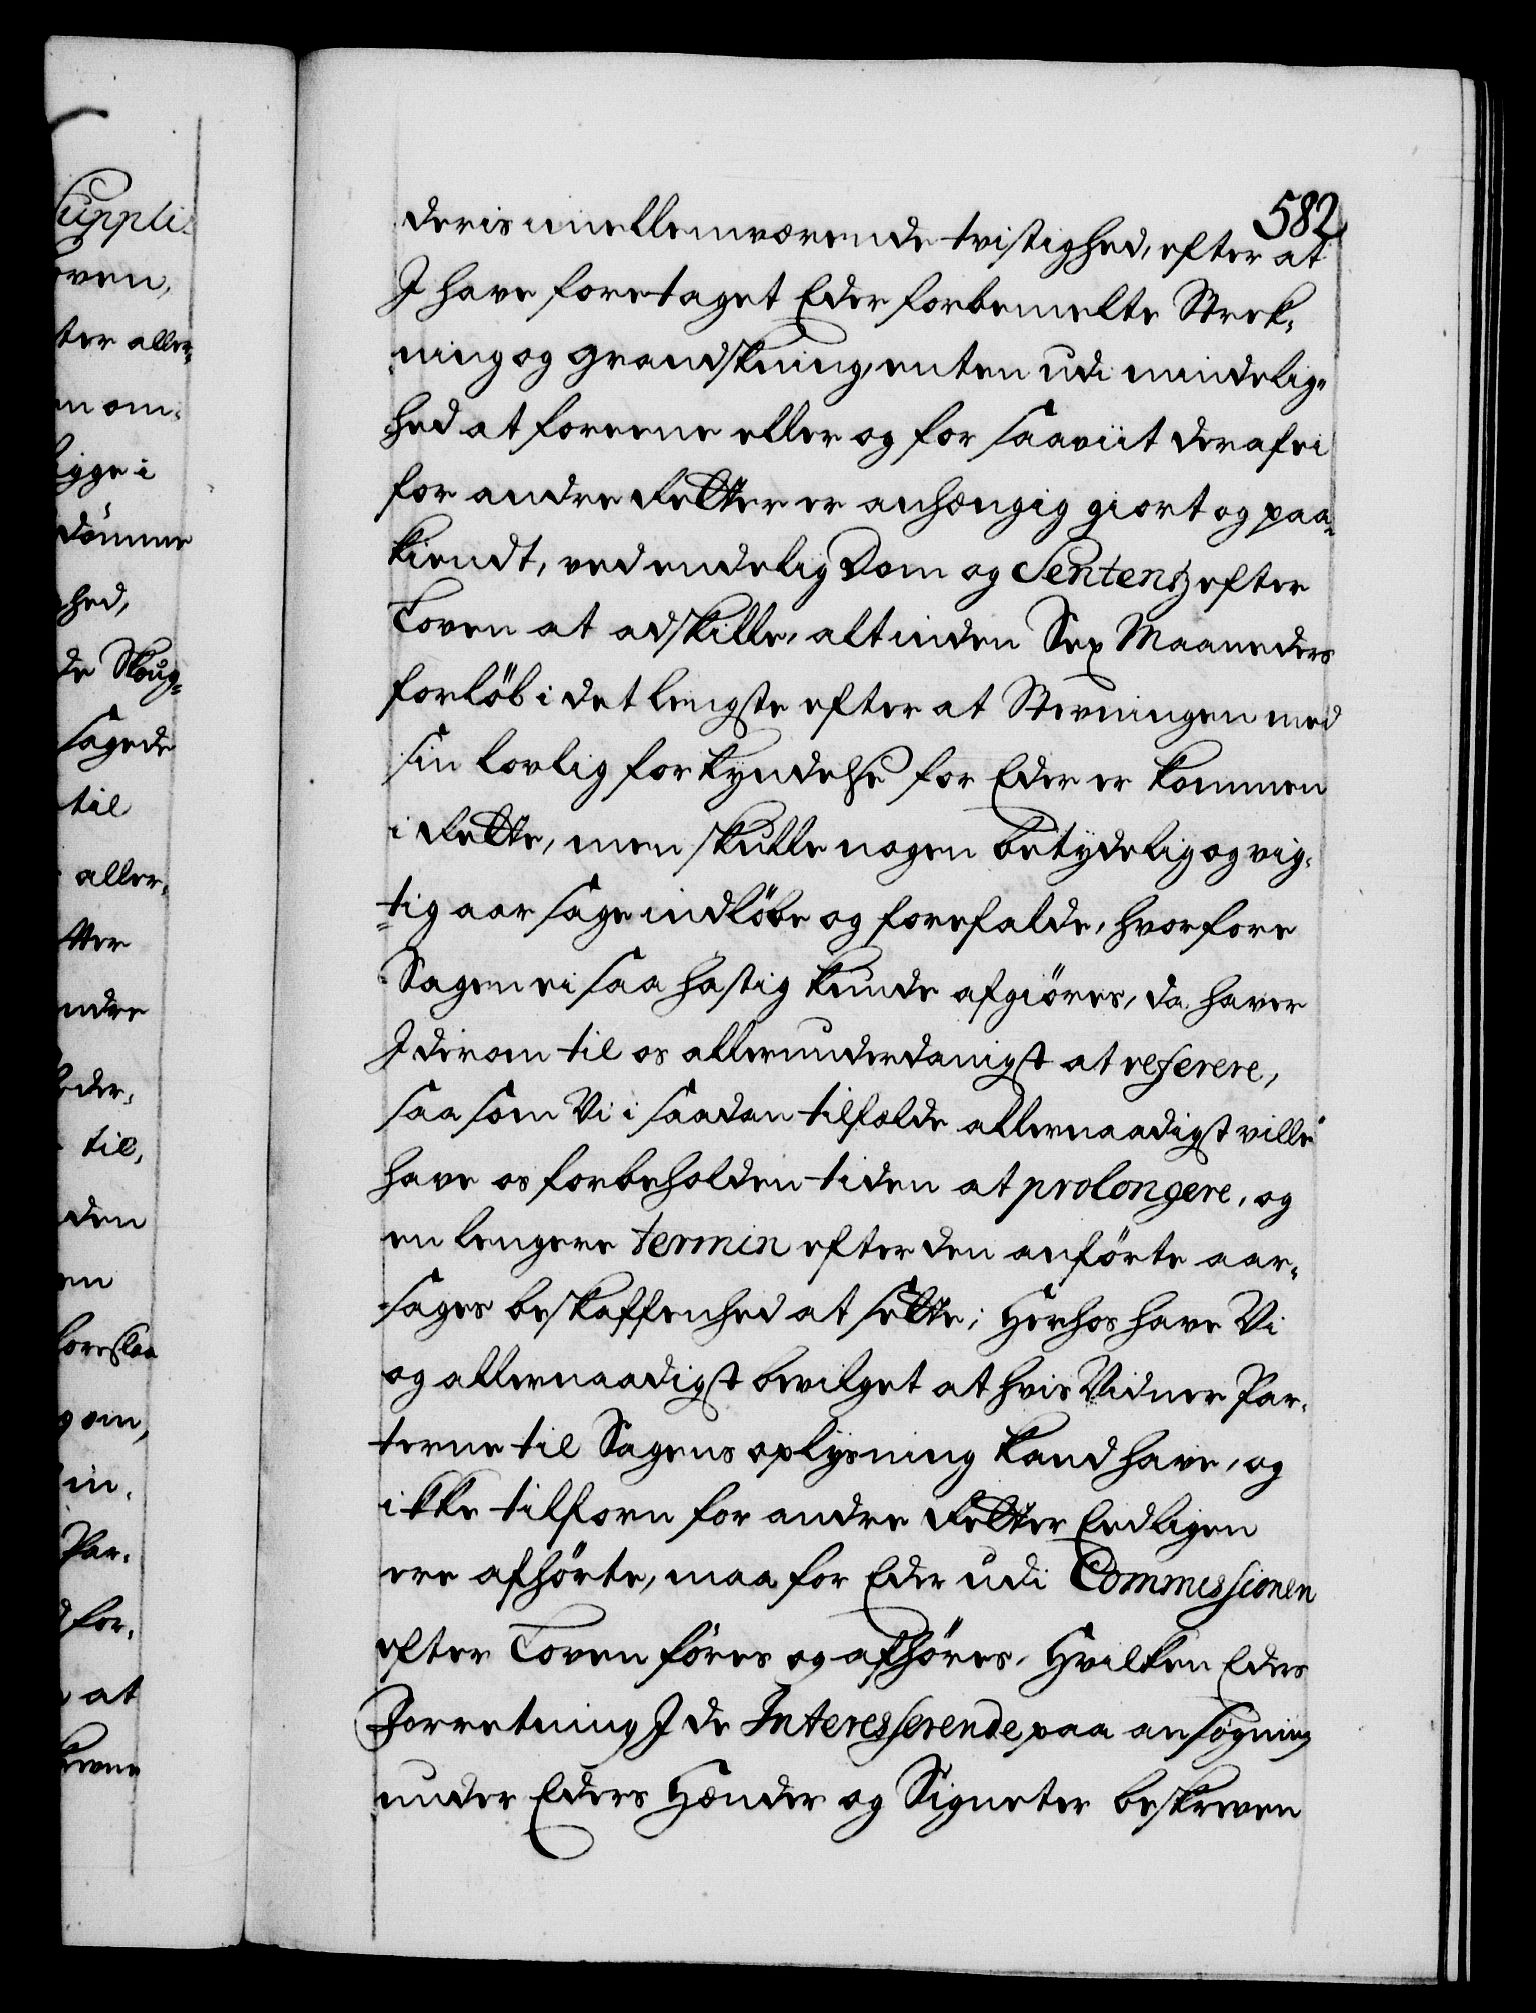 582
deris imellemværende tvistighed, efter at
I have foretaget Eder forbemelte Strek-
ning og grandskning, enten udi mindelig-
hed at foreene eller og for saaviit deraf ei
for andre Retter er anhængig giort og paa-
kiendt, ved endelig Dom og Sententz efter
Loven at adskille, alt inden Sex Maaneders
forløb i det lengste efter at Stevningen med
sin lovlig forkyndelse for Eder er kommen
i Rette, men skulle nogen betydelig og vig-
tig aarsage indløbe og forefalde, hvorfore
Sagen ei saa hastig kunde afgiöres, da haver
I derom til os allerunderdanigst at referere,
saa som Vi i saadan tilfælde allernaadigst ville
have os forbeholden tiden at prolongere, og
en lengere termin efter den anførte aar-
sages beskaffenhed at sette; Herhos have Vi
og allernaadigst bevilget at hvis Vidner Par-
terne til Sagens oplysning kand have, og
ikke tilforn for andre Retter Eedligen
ere afhørte, maa for Eder udi Commissionen
efter Loven føres og afhøres. Hvilken Eders
Forretning I de Interesserende paa ansøgning
under Eders Hænder og Signeter beskreven
Suppli-
oven,
ter aller-
en om-
ligge i
dömme
hed,
de Skoug-
sagede
til
aller-
tter
ndre
til,
den
en
foreslaa
om,
in-
Par-
for-
at